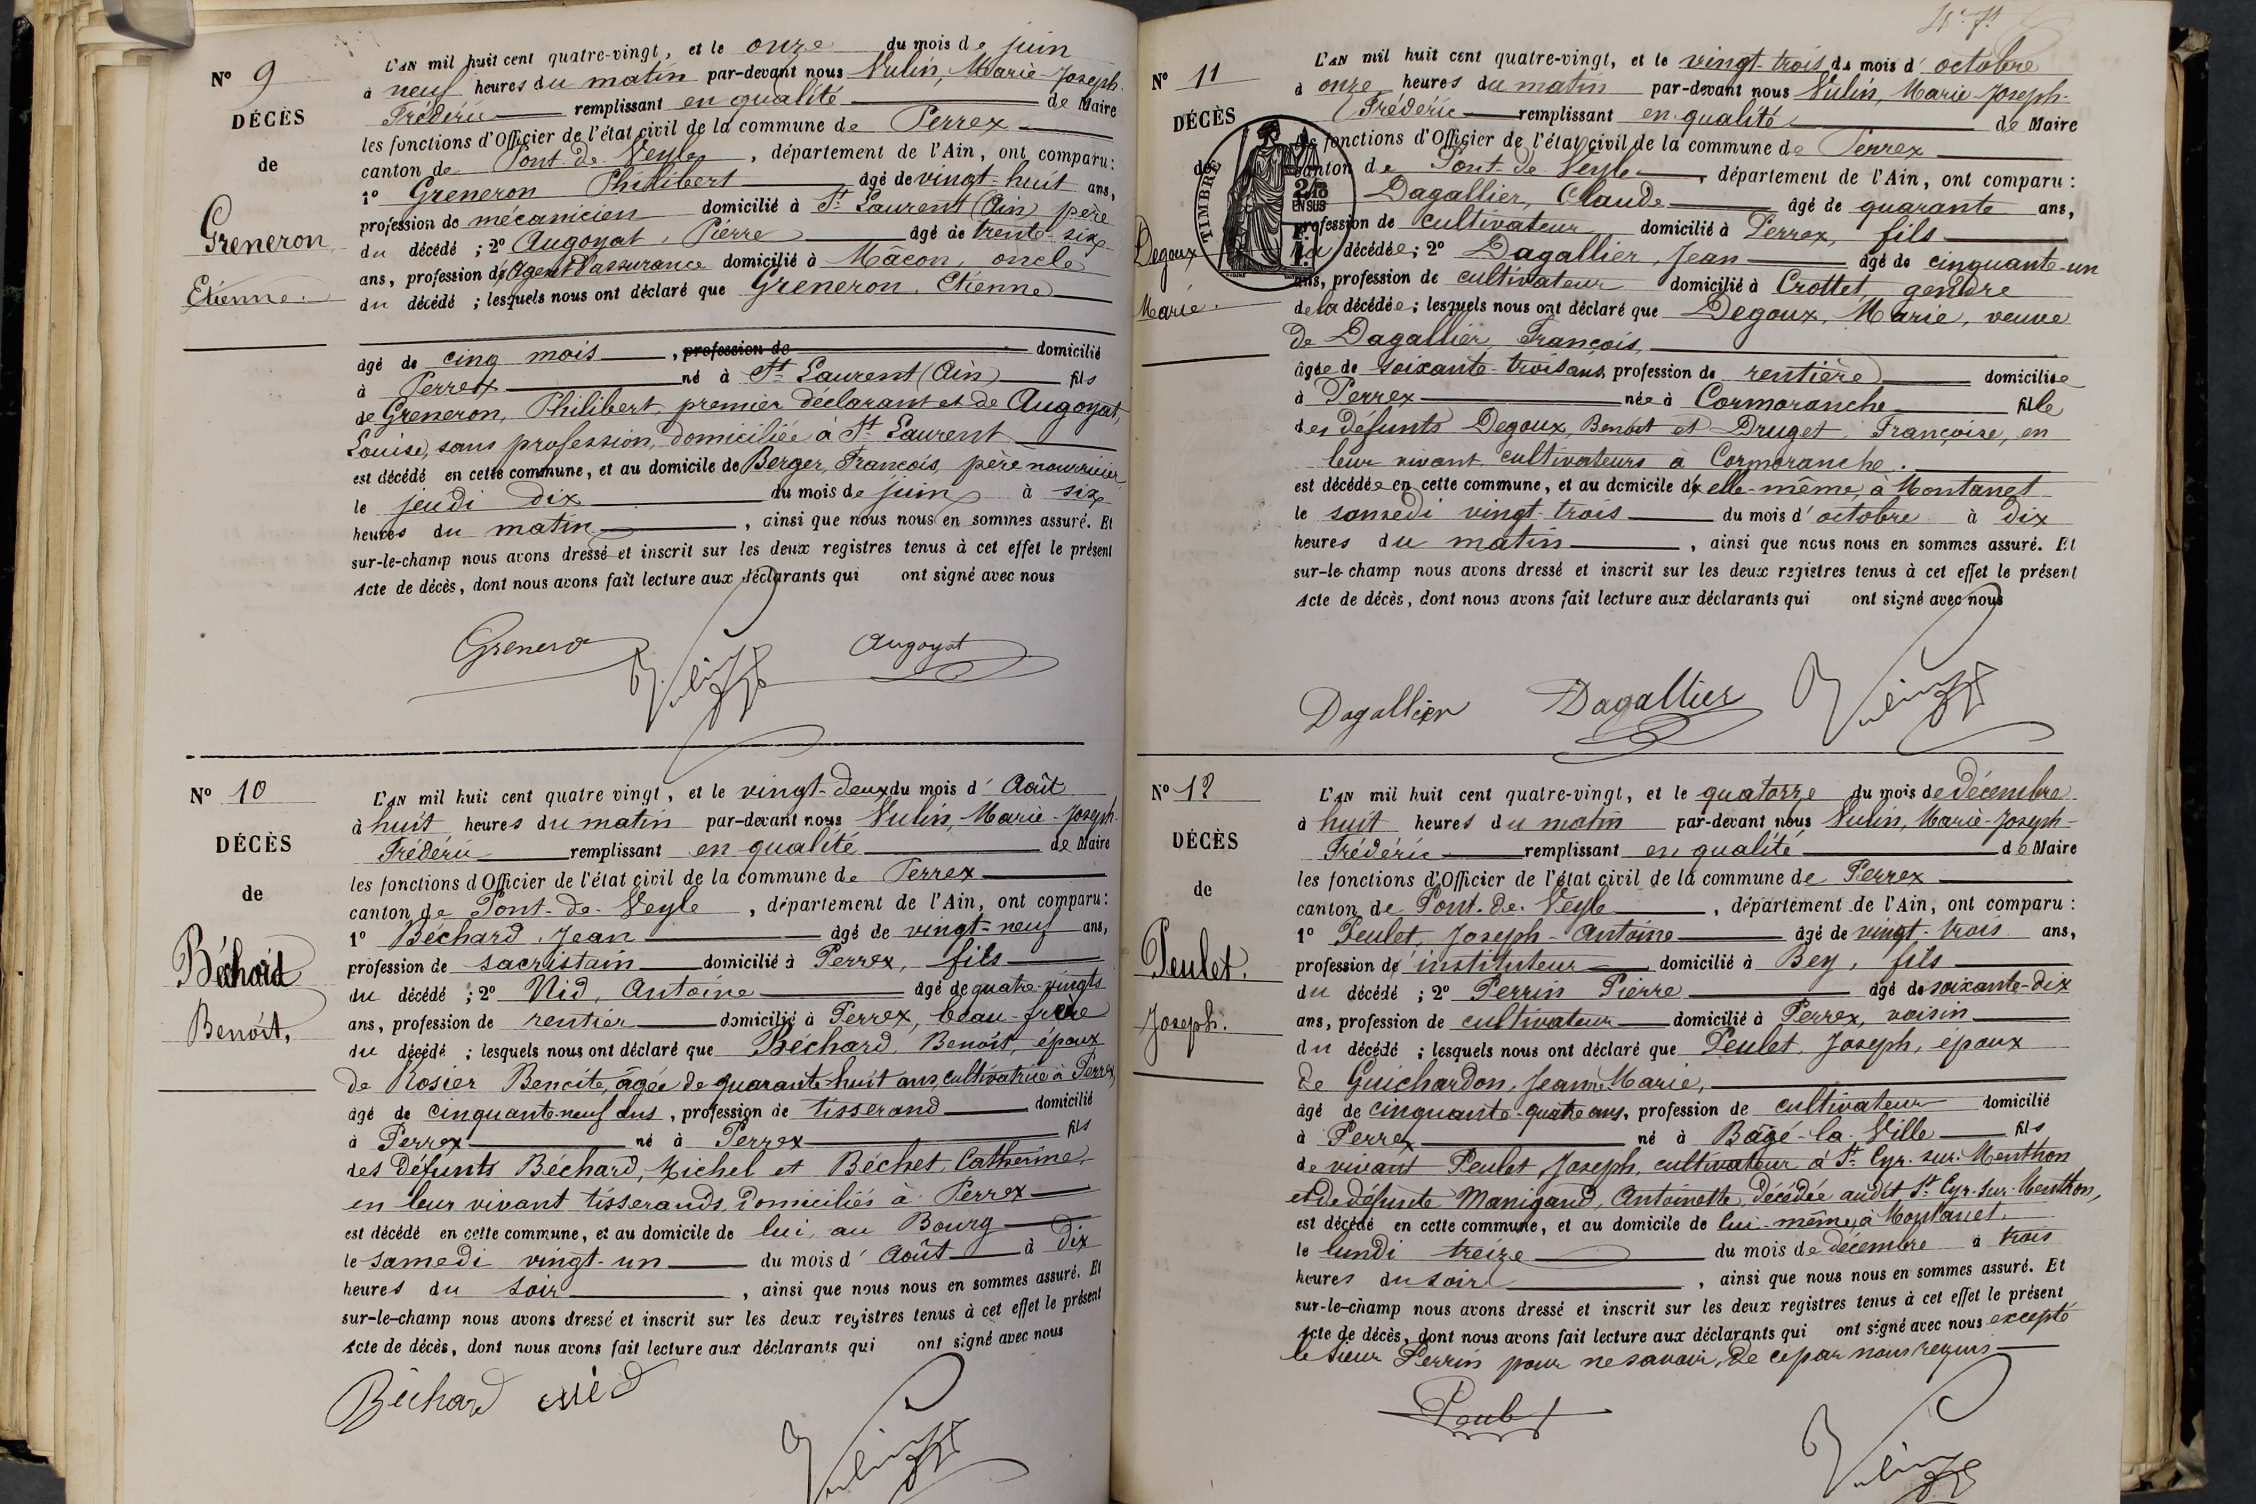 Nº 9
DÉCÈS
de
Greneron
Etienne.
L'AN mil huit cent quatre-vingt, et le onze du mois de juin
à neuf heures du matin par-devant nous Vulin, Marie-Joseph-
Frédéric remplissant en qualité de Maire
les fonctions d'Officier de l'état civil de la commune de Perrex
canton de Pont-de-Veyle, département de l'Ain, ont comparu:
1º Greneron Philibert âgé de vingt-huit ans,
profession de mécanicien domicilié à St Laurent (Ain) père
du décédé ; 2º Augoyat, Pierre âgé de trente-six
ans, profession d'Agent d'assurance domicilié à Mâcon, oncle
du décédé ; lesquels nous ont déclaré que Greneron, Etienne
âgé de cinq mois, profession de domicilié
à Perrex né à St Laurent (Ain) fils
de Greneron, Philibert, premier déclarant et de Augoyat,
Louise, sans profession, domiciliée à St Laurent
est décédé en cette commune, et au domicile de Berger, François, père nourricier
le jeudi dix du mois de juin à six
heures du matin, ainsi que nous nous en sommes assuré. Et
sur-le-champ nous avons dressé et inscrit sur les deux registres tenus à cet effet le présent
Acte de décès, dont nous avons fait lecture aux déclarants qui ont signé avec nous
Greneron Vulin Augoyat
Nº 10
DÉCÈS
de
Béchard
Benoît,
L'AN mil huit cent quatre vingt, et le vingt-deux du mois d'Août
à huit heures du matin par-devant nous Vulin, Marie-Joseph-
Frédéric remplissant en qualité de Maire
les fonctions d'Officier de l'état civil de la commune de Perrex
canton de Pont-de-Veyle, département de l'Ain, ont comparu:
1º Béchard, Jean âgé de vingt-neuf ans,
profession de sacristain domicilié à Perrex, fils
du décédé ; 2º Nid, Antoine âgé de quatre-vingts
ans, profession de rentier domicilié à Perrex, beau-frère
du décédé ; lesquels nous ont déclaré que Béchard, Benoît, époux
de Rosier Benoite, âgée de quarante-huit ans, cultivatrice à Perrex,
âgé de cinquante-neuf ans, profession de tisserand domicilié
à Perrex né à Perrex fils
des défunts Béchard, Michel et Béchet, Catherine,
en leur vivant tisserands, domiciliés à Perrex
est décédé en cette commune, et au domicile de lui, au Bourg
le samedi vingt-un du mois d'Août à dix
heures du soir, ainsi que nous nous en sommes assuré. Et
sur-le-champ nous avons dressé et inscrit sur les deux registres tenus à cet effet le présent
Acte de décès, dont nous avons fait lecture aux déclarants qui ont signé avec nous
Béchard Nid
Vulin
Nº 11
DÉCÈS
de
Degoux
Marie.
TIMBRE
2/10
EN SUS
L'AN mil huit cent quatre-vingt, et le vingt-trois du mois d'octobre
à onze heures du matin par-devant nous Vulin, Marie-Joseph-
Frédéric remplissant en qualité de Maire
les fonctions d'Officier de l'état civil de la commune de Perrex
canton de Pont-de-Veyle, département de l'Ain, ont comparu :
Dagallier, Claude âgé de quarante ans,
profession de cultivateur domicilié à Perrex, fils
décédée ; 2º Dagallier, Jean âgé de cinquante-un
ans, profession de cultivateur domicilié à Crottet, gendre
de la décédée ; lesquels nous ont déclaré que Degoux, Marie, veuve
de Dagallier, François,
âgée de soixante-trois ans, profession de rentière domiciliée
à Perrex née à Cormoranche fille
des défunts Degoux, Benoît et Druget, Françoise, en
leur vivant cultivateurs à Cormoranche.
est décédée en cette commune, et au domicile d'elle-même, à Montanet
le samedi vingt-trois du mois d'octobre à dix
heures du matin, ainsi que nous nous en sommes assuré. Et
sur-le-champ nous avons dressé et inscrit sur les deux registres tenus à cet effet le présent
Acte de décès, dont nous avons fait lecture aux déclarants qui ont signé avec nous
Dagallier Dagallier Vulin
Nº 12
DÉCÈS
de
Peulet.
Joseph.
L'AN mil huit cent quatre-vingt, et le quatorze du mois de décembre
à huit heures du matin par-devant nous Vulin, Marie-Joseph-
Frédéric remplissant en qualité de Maire
les fonctions d'Officier de l'état civil de la commune de Perrex
canton de Pont-de-Veyle, département de l'Ain, ont comparu :
1º Peulet, Joseph-Antoine âgé de vingt-trois ans,
profession d'instituteur domicilié à Bey, fils
du décédé ; 2º Perrin Pierre âgé de soixante-dix
ans, profession de cultivateur domicilié à Perrex, voisin
du décédé ; lesquels nous ont déclaré que Peulet, Joseph, époux
de Guichardon, Jeanne Marie,
âgé de cinquante-quatre ans, profession de cultivateur domicilié
à Perrex né à Bâgé-la-Ville fils
de vivant Peulet Joseph, cultivateur à St Cyr-sur-Menthon
et de défunte Manigand, Antoinette, décédée audit St Cyr-sur-Menthon,
est décédé en cette commune, et au domicile de lui-même, à Montanet.
le lundi treize du mois de décembre à trois
heures du soir, ainsi que nous nous en sommes assuré. Et
sur-le-champ nous avons dressé et inscrit sur les deux registres tenus à cet effet le présent
Acte de décès, dont nous avons fait lecture aux déclarants qui ont signé avec nous excepté
le sieur Perrin pour ne savoir, de ce par nous requis
Peulet
Vulin